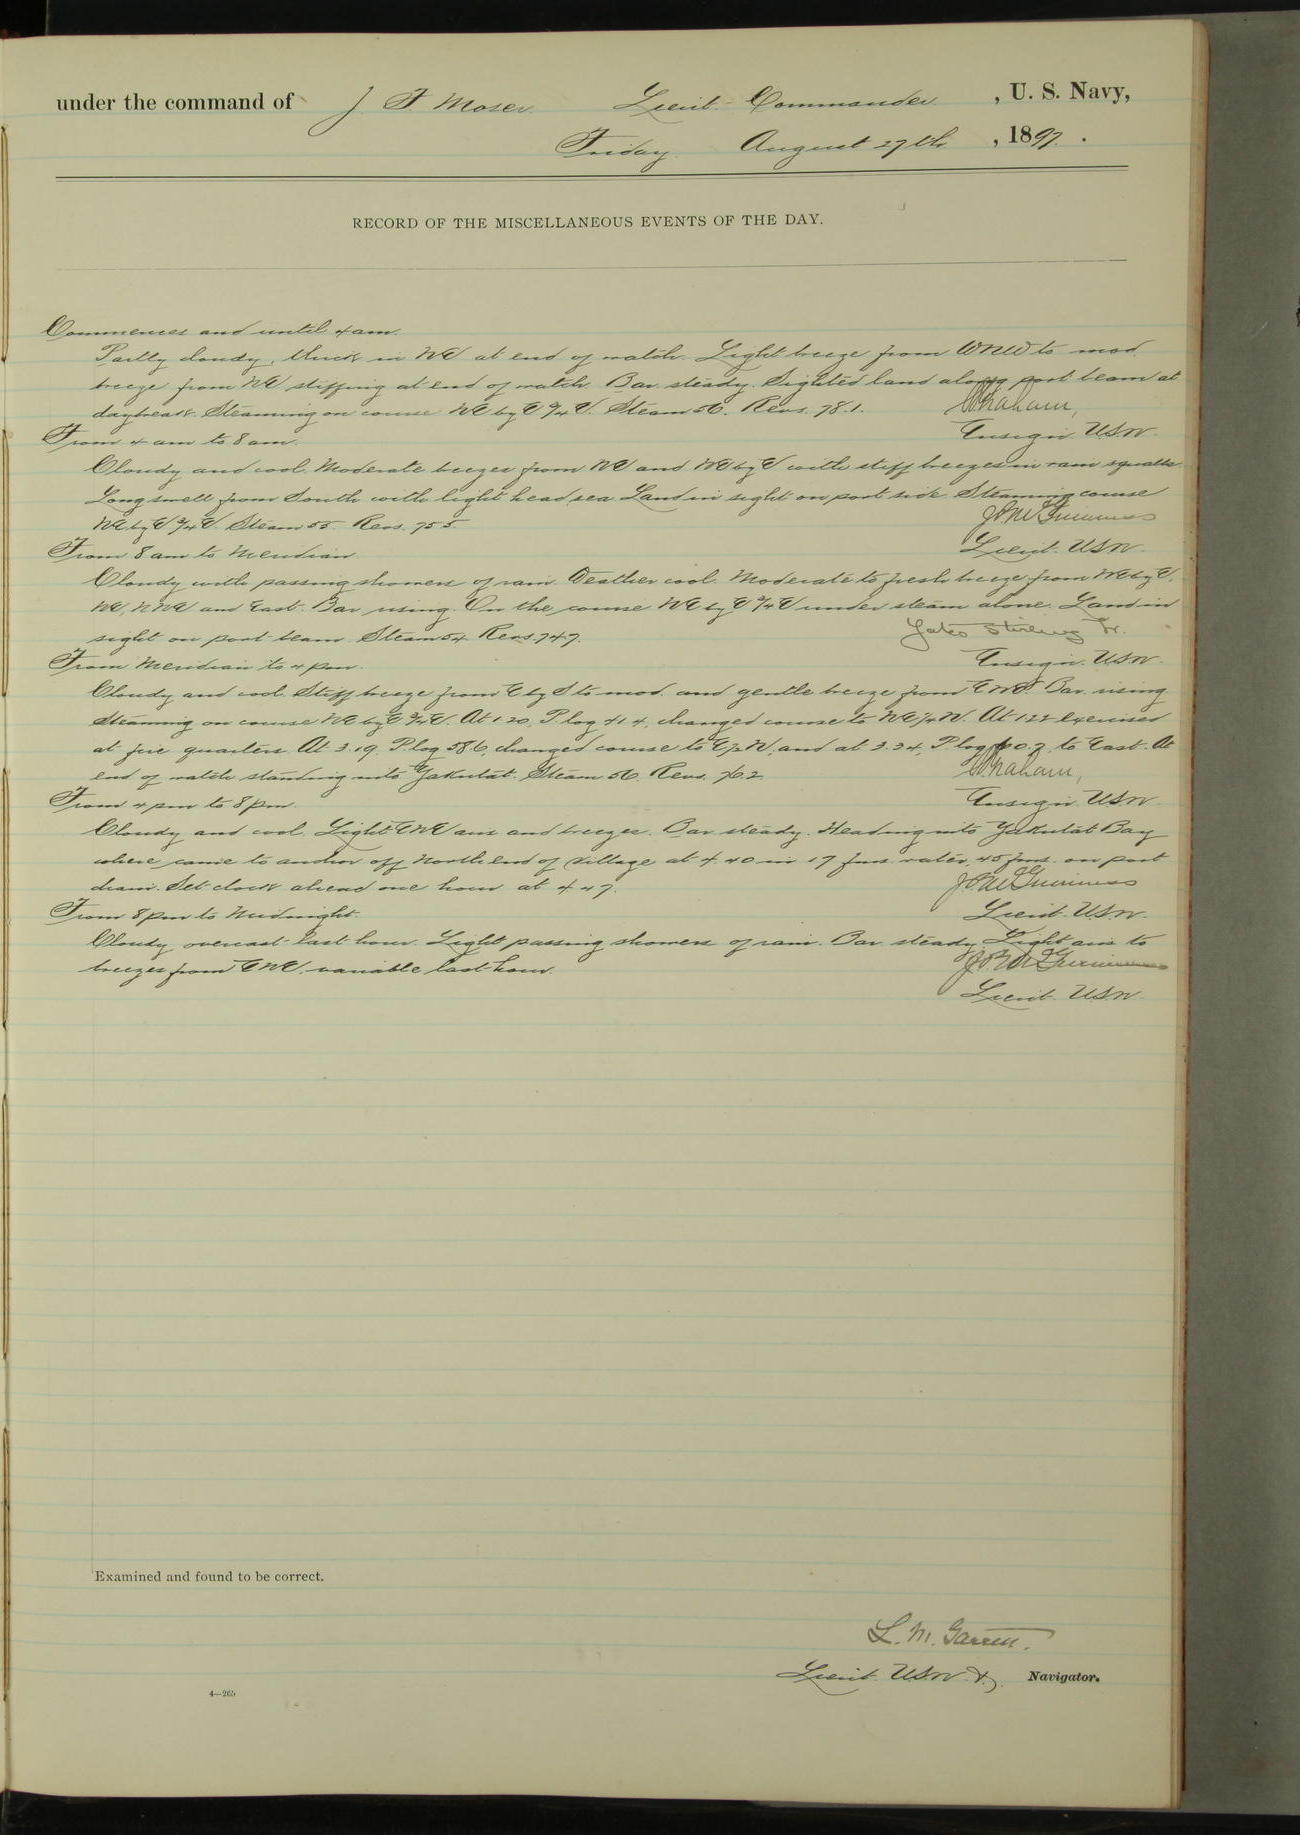 under the command of J F Moser Lieut. Commander , U. S. Navy,
Friday August 27th , 1897.
RECORD OF THE MISCELLANEOUS EVENTS OF THE DAY.
Commences and until 4 am.
Partly cloudy, thick in NE at end of watch. Light breeze from WNW to mod.
breeze from NE stiffing at end of watch. Bar. steady. Sighted land along port beam at
daybreak. Steaming on course NE by E 3/4 E. Steam 56. Revs. 78.1.
Graham,
From 4 am to 8 am.
Ensign USN.
Cloudy and cool. Moderate breezes from NE and NE by E with stiff breezes in rain squalls.
Long swell from South with light head sea. Land in sight on port side. Steaming course
NE by E 3/4 E. Steam 55. Revs. 75.5
J P McGuinness
From 8 am to Meridian
Lieut. USN.
Cloudy with passing showers of rain. Weather cool. Moderate to fresh breeze from NE by E,
NE, NNE and East. Bar rising. On the course NE by E 3/4 E under steam alone. Land in
sight on port beam. Steam 54 Revs. 74.7.
Yates Stirling Jr.
From Meridian to 4 pm.
Ensign. USN.
Cloudy and cool. Stiff breeze from E by S to mod. and gentle breeze from ENE. Bar. rising
Steaming on course NE by E 3/4 E. At 1.20, P. log 41.4, changed course to NE 1/4 N. At 1.22 Exercised
at fire quarters. At 3.19, P log 58.6, changed course to E 1/2 N, and at 3.34, P log 60.2, to East. At
end of watch standing into Yakutat. Steam 56. Revs. 76.2
Graham,
From 4 pm to 8 pm.
Ensign USN.
Cloudy and cool. Light ENE airs and breezes. Bar. steady. Heading into Yakutat Bay
where came to anchor off North end of Village at 4.40 in 17 fms. water, 45 fms. on port
chain. Set clock ahead one hour at 4.47.
J P McGuinness
From 8 pm to Midnight.
Lieut. USN.
Cloudy overcast last hour. Light passing showers of rain. Bar. steady. Light airs to
breezes from ENE. variable last hour.
J P McGuinness
Lieut. USN.
Examined and found to be correct.
L. M. Garrett.
Lieut. USN. & Navigator.
4—265